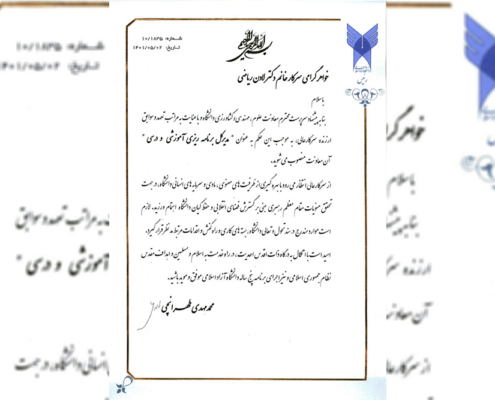 شماره: ۱۰/۱۸۳۵
تاریخ: ۱۴۰۱/۰۵/۰۲
بسم الله الرحمن الرحیم
رئیس
خواهر گرامی سرکار خانم دکتر لادن ریاضی
با سلام
بنا به پیشنهاد سرپرست محترم معاونت علوم، مهندسی و کشاورزی دانشگاه و با عنایت به مراتب تعهد و سوابق
ارزنده سرکارعالی، به موجب این حکم به عنوان " مدیرکل برنامه ریزی آموزشی و درسی "
آن معاونت منصوب می شوید.
از سرکارعالی انتظار می رود با بهره گیری از ظرفیت های معنوی، مادی و سرمایه های انسانی دانشگاه در جهت
تحقق منویات مقام معظم رهبری مبنی بر گسترش فضای انقلابی و حفظ کیان دانشگاه اهتمام ورزید. لازم
است موارد مندرج در سند تحول و تعالی دانشگاه، بسته های کاری و راه کنش و اقدامات مرتبط مد نظر قرار گیرد.
امید است با اتکال به درگاه ذات اقدس احدیت، در راه خدمت به اسلام و مسلمین و اهداف مقدس
نظام جمهوری اسلامی و نیز اجرای برنامه پنج ساله دانشگاه آزاد اسلامی موفق و موید باشید.
محمد مهدی طهرانچی